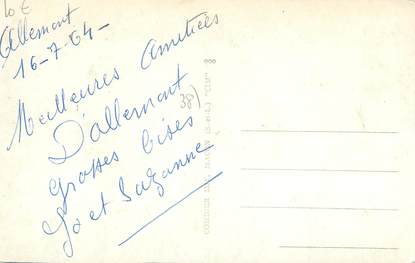 10 €
Allemont
16-7-64-
Meilleures Amitiées
D'allemont
38)
grosses bises
Jo et Suzanne